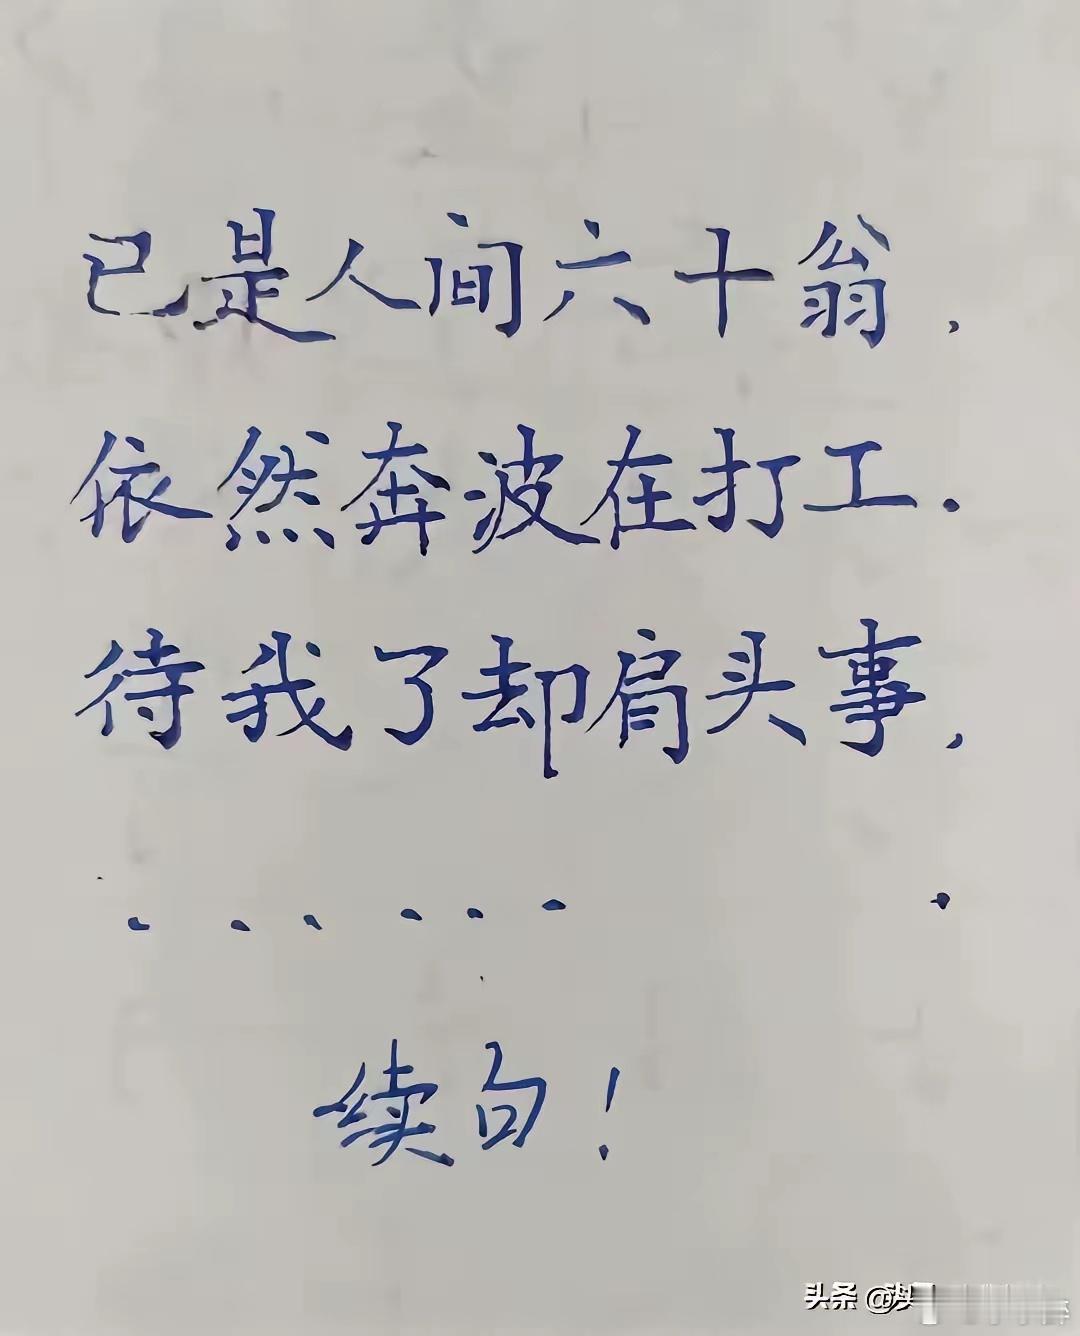 已是人间六十翁，
依然奔波在打工．
待我了却肩头事，
．．．．．．．
续句！
头条 @